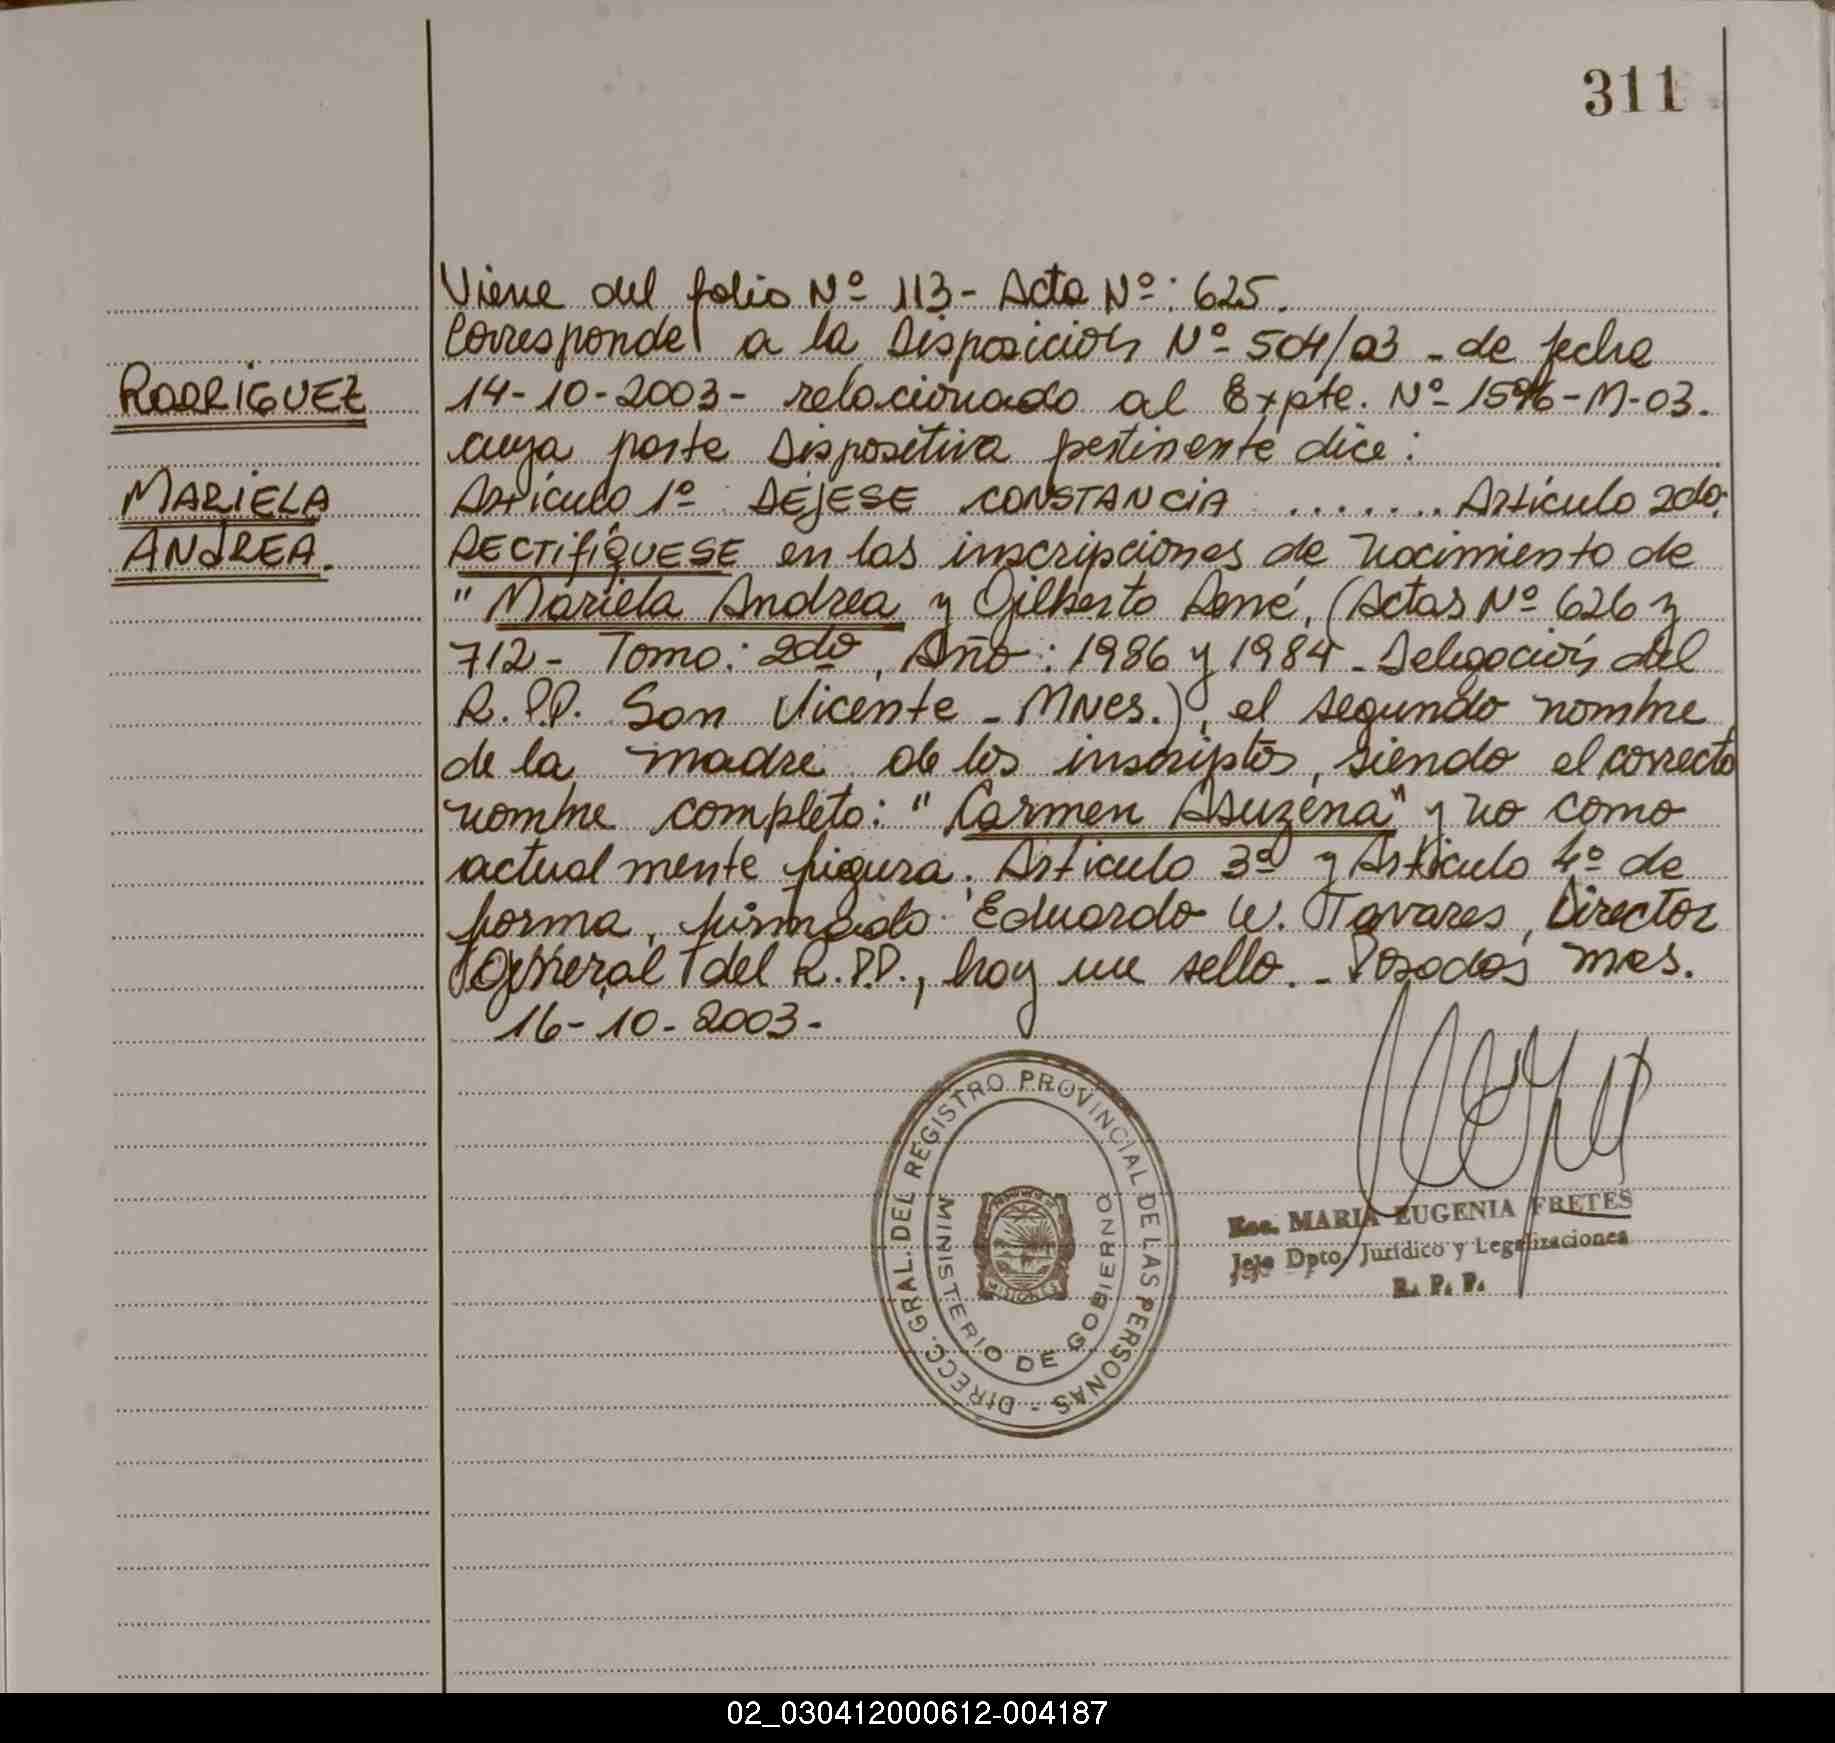 311
Viene del folio Nº 113- Acta Nº: 625.
Corresponde a la Disposición Nº 504/03 - de fecha
RODRÍGUEZ
14-10-2003- relacionado al Expte. Nº 1596-M-03.
cuya parte Dispositiva pertinente dice:
MARIELA
ANDREA.
Artículo 1º DÉJESE CONSTANCIA ....... Artículo 2do.
RECTIFÍQUESE en las inscripciones de nacimiento de
"Mariela Andrea y Gilberto René, (Actas Nº 626 y
712- Tomo: 2do, Año: 1986 y 1984 - Delegación del
R.P.P. San Vicente - Mnes.), el segundo nombre
de la madre de los inscriptos, siendo el correcto
nombre completo: "Carmen Asuzena" y no como
actualmente figura. Artículo 3º y Artículo 4º de
forma, firmado Eduardo W. Tavares, Director
General del R.P.P., hay un sello. - Posadas mnes.
16-10-2003-
DIRECC. GRAL. DEL REGISTRO PROVINCIAL DE LAS PERSONAS -
MINISTERIO DE GOBIERNO
Esc. MARIA EUGENIA FRETES
Jefe Dpto. Jurídico y Legalizaciones
R. P. P.
02_030412000612-004187